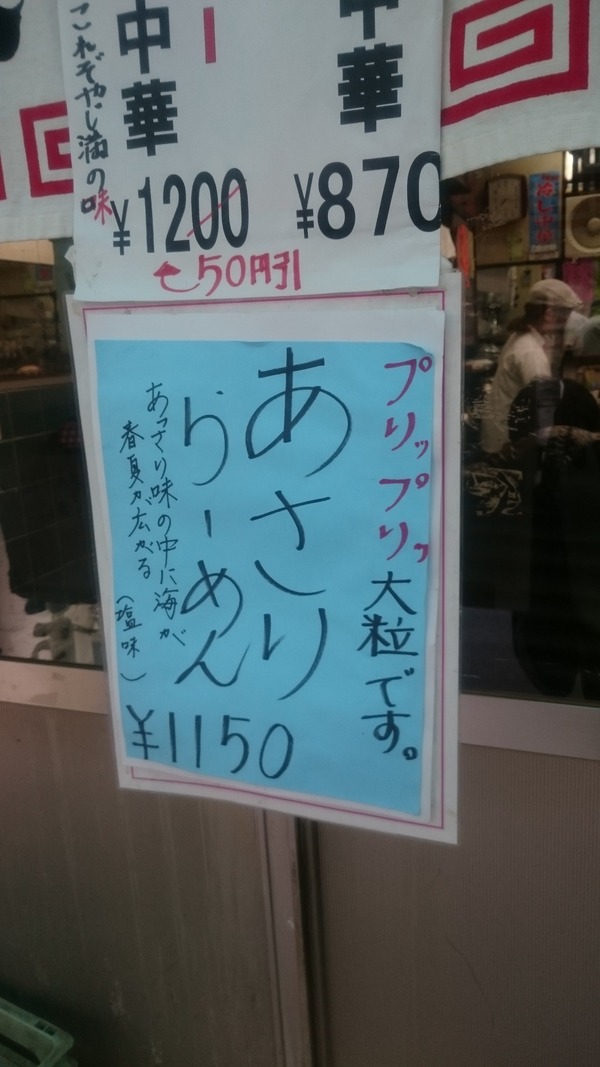 中華
¥870
中華
¥1200
50円引
これぞやし満の味
プリップリッ大粒です。
あさり
らーめん
あっさり味の中に海が
春夏が広がる(塩味)
¥1150